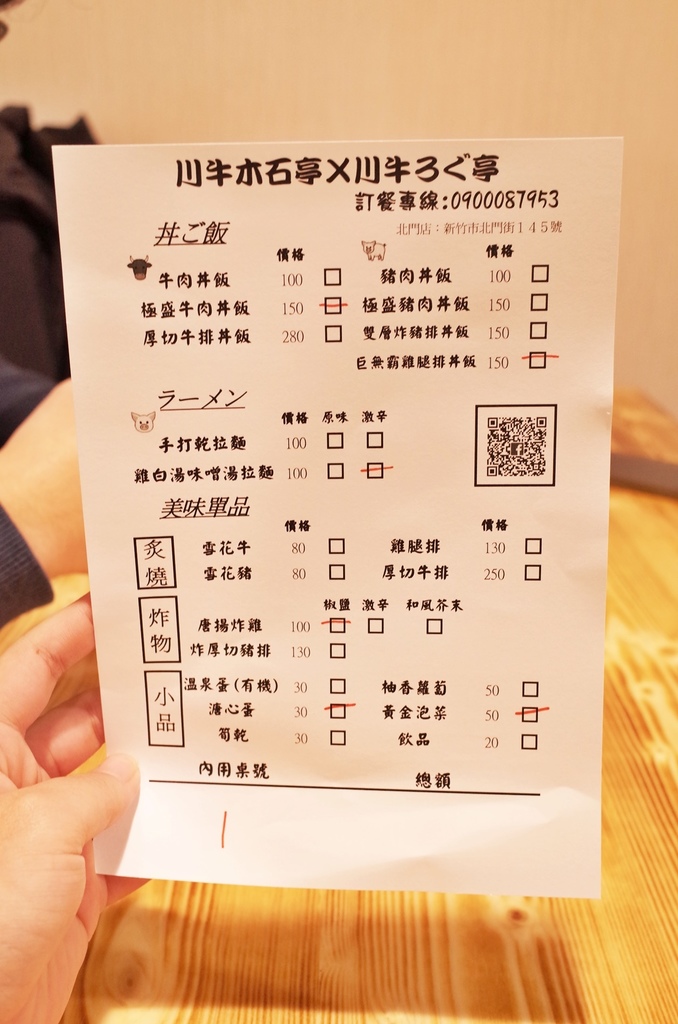 川牛木石亭X川牛ろぐ亭
訂餐專線:0900087953
北門店：新竹市北門街１４５號
丼ご飯
價格
牛肉丼飯 100 □
極盛牛肉丼飯 150 □
厚切牛排丼飯 280 □
價格
豬肉丼飯 100 □
極盛豬肉丼飯 150 □
雙層炸豬排丼飯 150 □
巨無霸雞腿排丼飯 150 □
ラーメン
價格 原味 激辛
手打乾拉麵 100 □ □
雞白湯味噌湯拉麵 100 □ □
美味單品
炙燒
價格
雪花牛 80 □
雪花豬 80 □
價格
雞腿排 130 □
厚切牛排 250 □
炸物
椒鹽 激辛 和風芥末
唐揚炸雞 100 □ □ □
炸厚切豬排 130 □
小品
溫泉蛋(有機) 30 □
溏心蛋 30 □
筍乾 30 □
柚香蘿蔔 50 □
黃金泡菜 50 □
飲品 20 □
內用桌號 總額
1